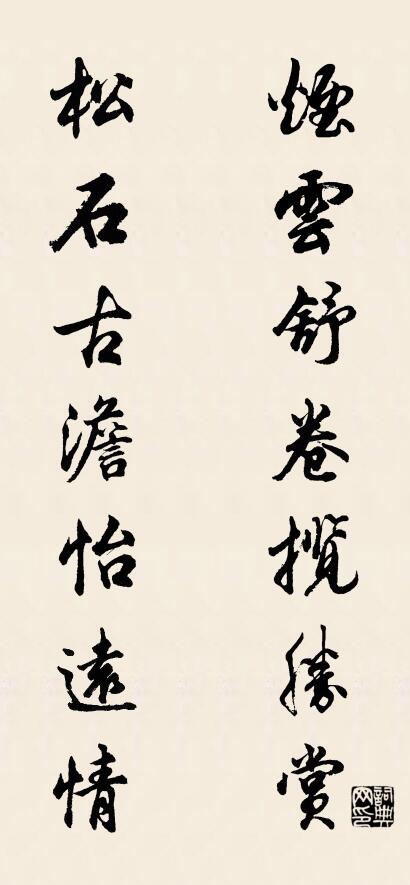 煙雲舒卷攬勝賞
松石古澹怡遠情
詞典網印